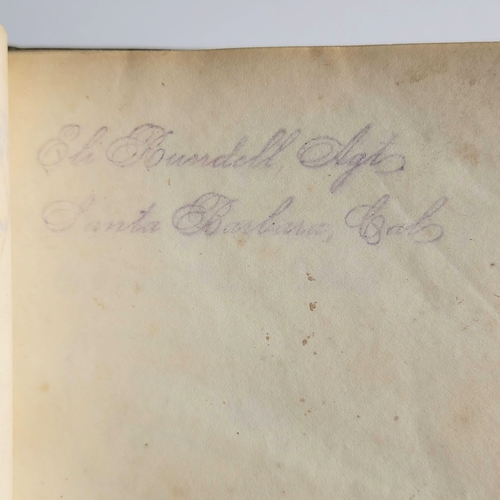 Eli Rundell Agt.
Santa Barbara, Cal.